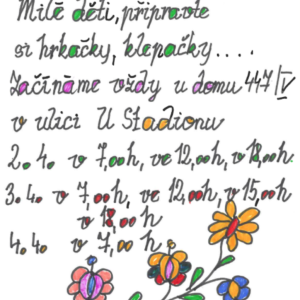 Milé děti, připravte
si hrkačky, klepačky....
Začínáme vždy u domu 447/IV
v ulici U Stadionu
2.4. v 7,ooh, ve 12,ooh, v 18,ooh.
3.4. v 7,ooh, ve 12,ooh, v 15,ooh
v 18,ooh
4.4. v 7,oo h